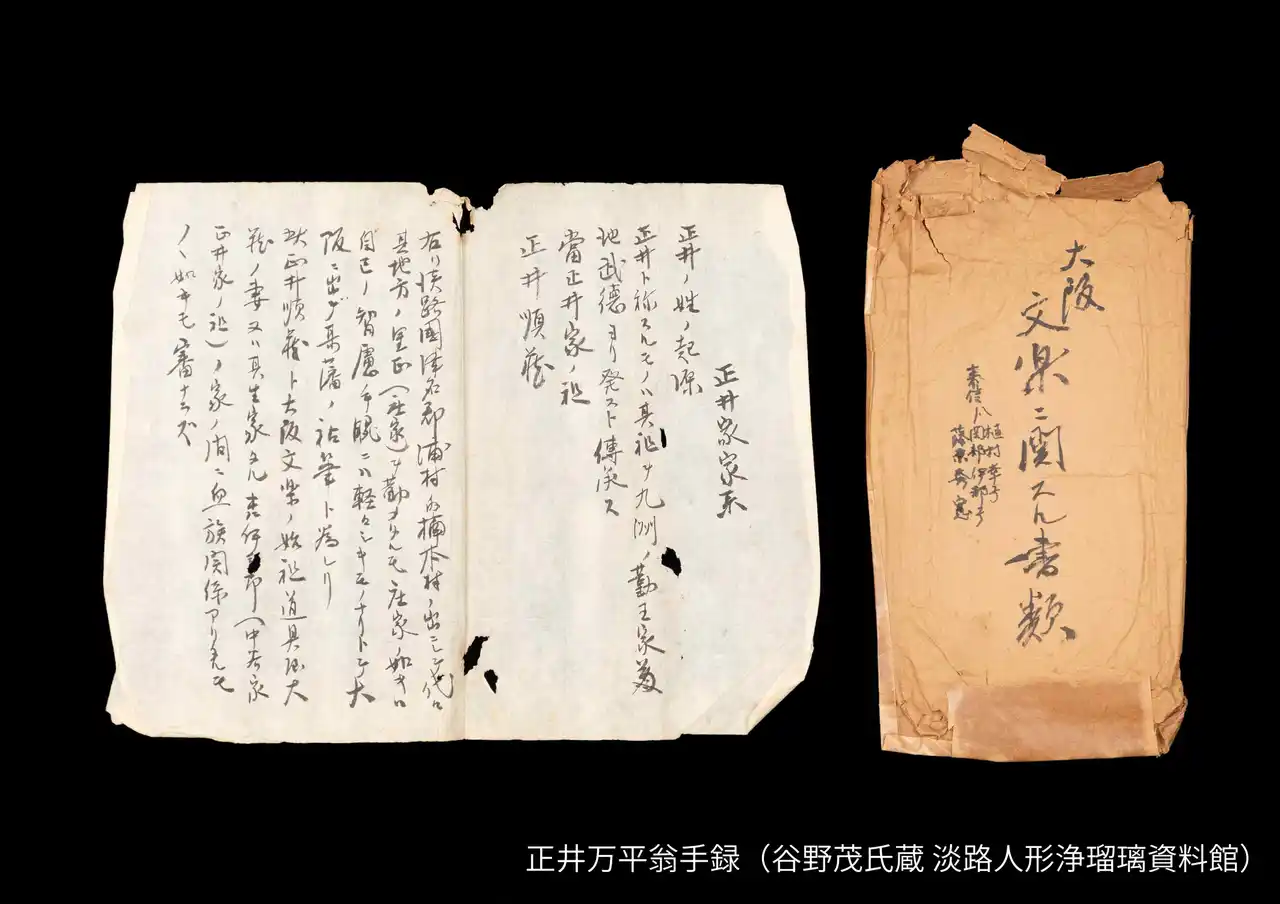 大阪
文楽ニ関スル書類
来信ハ植村幸子
関部伊都子
藤原秀憲
正井家家系
正井ノ姓ノ起源
正井ト称スルモノハ其祖ヲ九洲ノ勤王家菊
地武徳ヨリ発スト傳承ス
當正井家ノ祖
正井順蔵
右ハ淡路國津名郡浦村ノ楠本村ノ出ニシテ代々
其地方ノ里正(庄家)ヲ勤メタルモ庄家ノ如キハ
自己ノ智慮ヲ眺ニハ軽々シキモノナリトテ大
阪ニ出デ某藩ノ祐筆ト為レリ
此正井順蔵ト大阪文楽ノ始祖道具屋大
蔵ノ妻又ハ其生家 嘉伊 郎(中存家
正井家ノ祖)ノ家ノ間ニ血族関係アリタルモ
ノヽ如キモ審ナラズ
正井万平翁手録（谷野茂氏蔵 淡路人形浄瑠璃資料館）